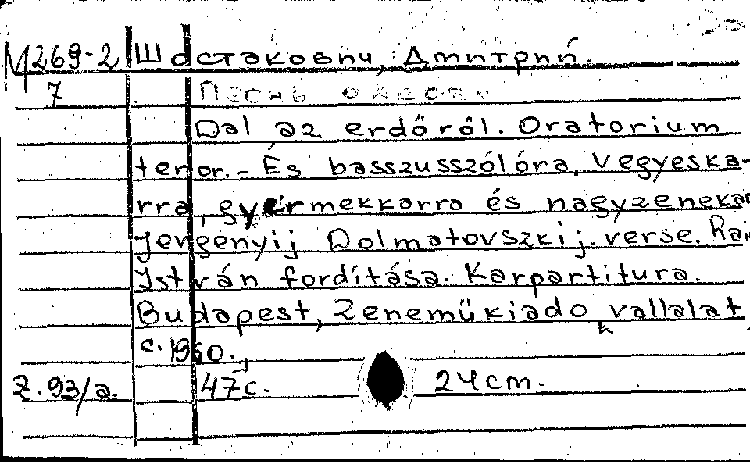 М269-2 Шостакович, Дмитрий.
7 Песнь о лесах
Dal az erdőről. Oratorium
tenor.- És basszusszólóra, vegyeska-
rra, gyermekkarra és nagyzeneka
Jevgenyij Dolmatovszkij. verse. Ra
István fordítása. Karpartitura.
Budapest, Zeneműkiado vallalat
c. 1960.
Z.93/a. 47c. 24cm.